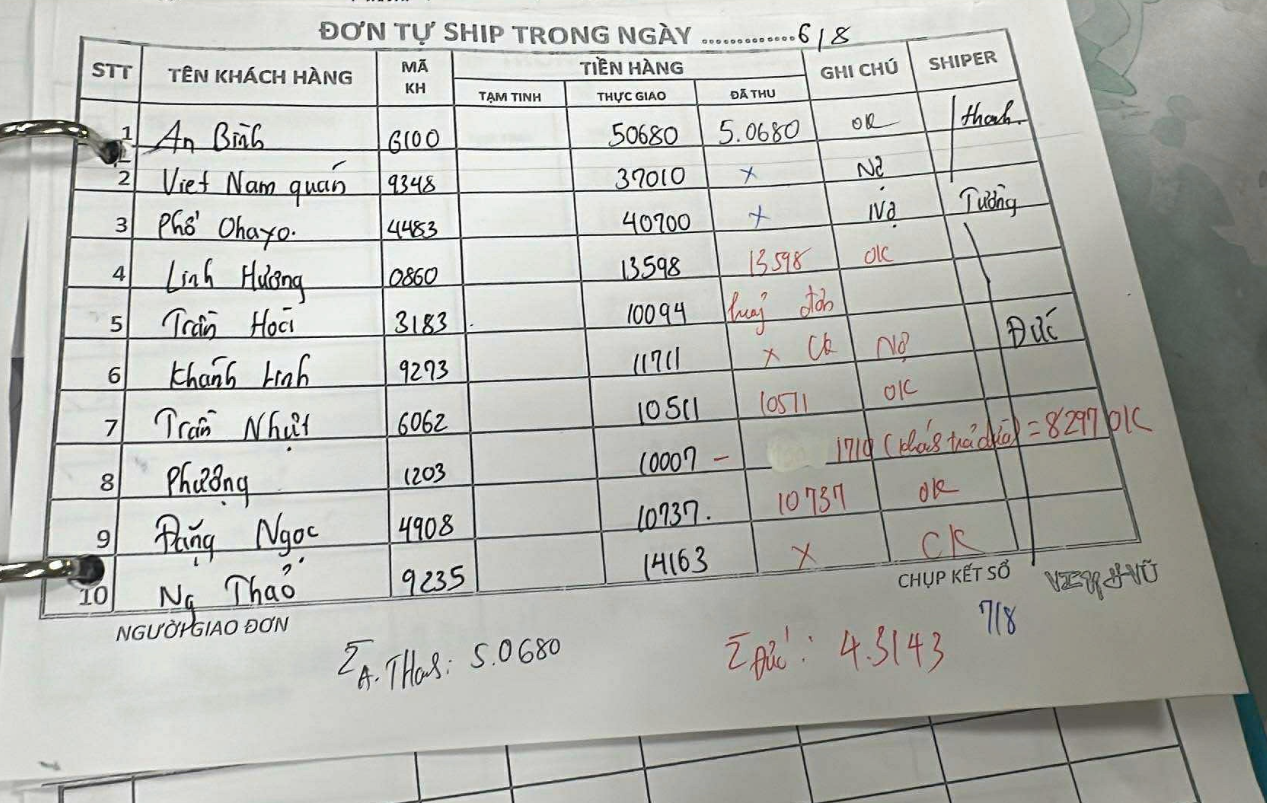 ĐƠN TỰ SHIP TRONG NGÀY .............6/8
STT TÊN KHÁCH HÀNG MÃ KH TIỀN HÀNG GHI CHÚ SHIPER
TẠM TINH THỰC GIAO ĐÃ THU
1 An Bình 6100 50680 5.0680 OK thanh.
2 Viet Nam quán 9348 37010 x Nợ
3 Phở Ohayo. 4483 40700 x Nợ Tường
4 Linh Hương 0860 13598 13598 OK
5 Trần Hoài 3183 10094 huỷ đơn
6 Khánh Linh 9273 11711 x CK Nợ Đức
7 Trần Nhựt 6062 10511 10511 OK
8 Phương 1203 10007 - 1710 (khách trả) = 8297 OK
9 Đặng Ngọc 4908 10737. 10737 OK
10 Ng Thảo 9235 14163 x CK
NGƯỜI GIAO ĐƠN CHỤP KẾT SỔ VŨ
Σ A. Thanh: 5.0680 Σ Đức: 4.3143 7/8